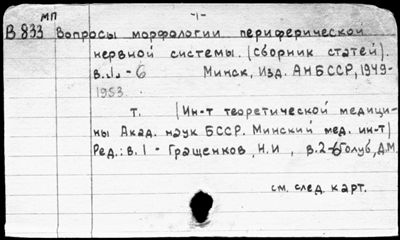 МП -1-
В 833 Вопросы морфологии периферической
нервной системы. (Сборник статей).
в. 1 - 6 Минск, Изд. АН БССР, 1949-
1953.
т. (Ин-т теоретической медици-
ны Акад. наук БССР. Минский мед. ин-т)
Ред.: в. 1 - Гращенков, Н.И , в.2-6 Голуб, Д.М.
см. след. карт.